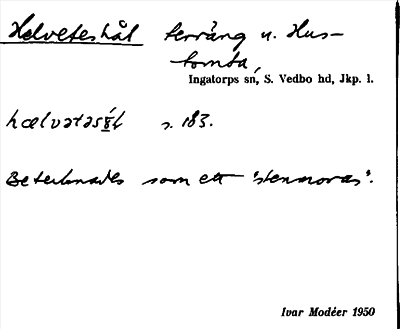 Helveteshål terräng u. Hus-
tomta,
Ingatorps sn, S. Vedbo hd, Jkp. l.
s. 183.
Betecknades som ett "stenmoras".
Ivar Modéer 1950